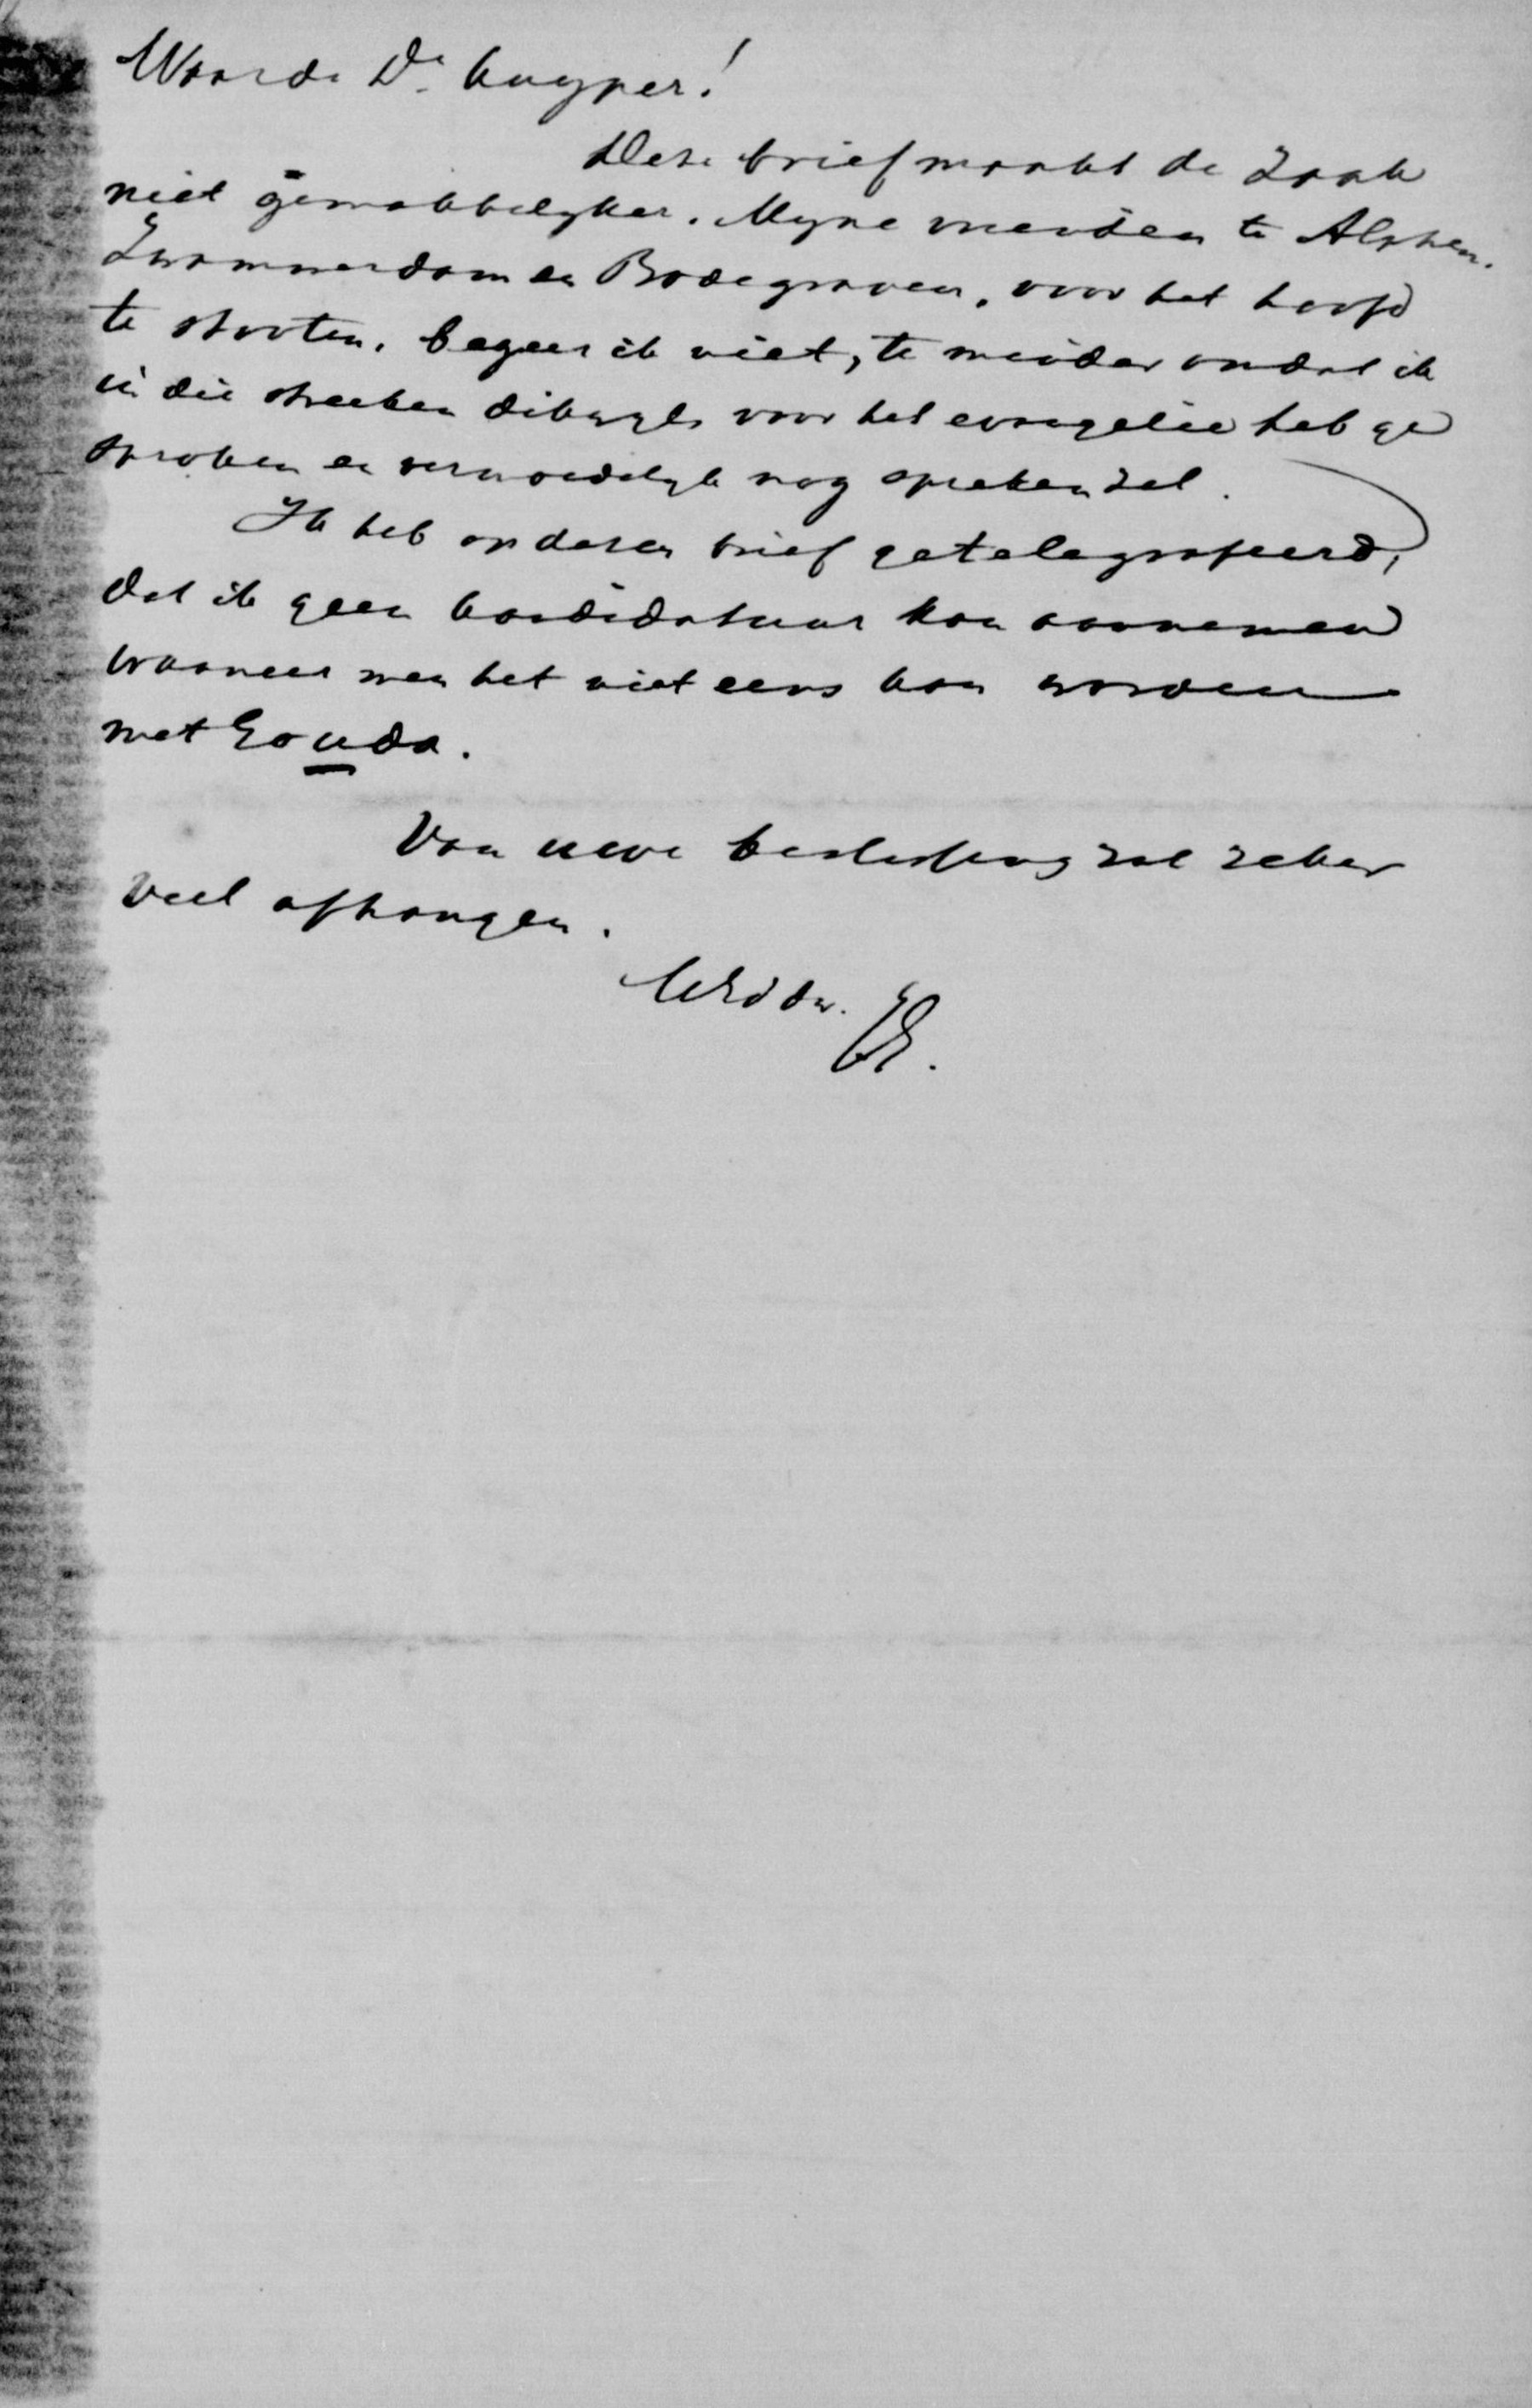 Waarde Dr. Kuyper!
Deze brief maakt de zaak
niet gemakkelyker. Myne vrienden te Alphen.
Zwammerdam en Bodegraven, voor het hoofd
te stooten, begeer ik niet, te minder omdat ik
in die streeken dikwyls voor het evangelie heb ge
sproken en vermoedelyk nog spreken zal.
Ik heb op dezen brief getelegrafeerd,
dat ik geen kandidatuur kan aannemen
wanneer men het niet eens kan worden
met Gouda.
Van uwe beslissing zal zeker
veel afhangen.